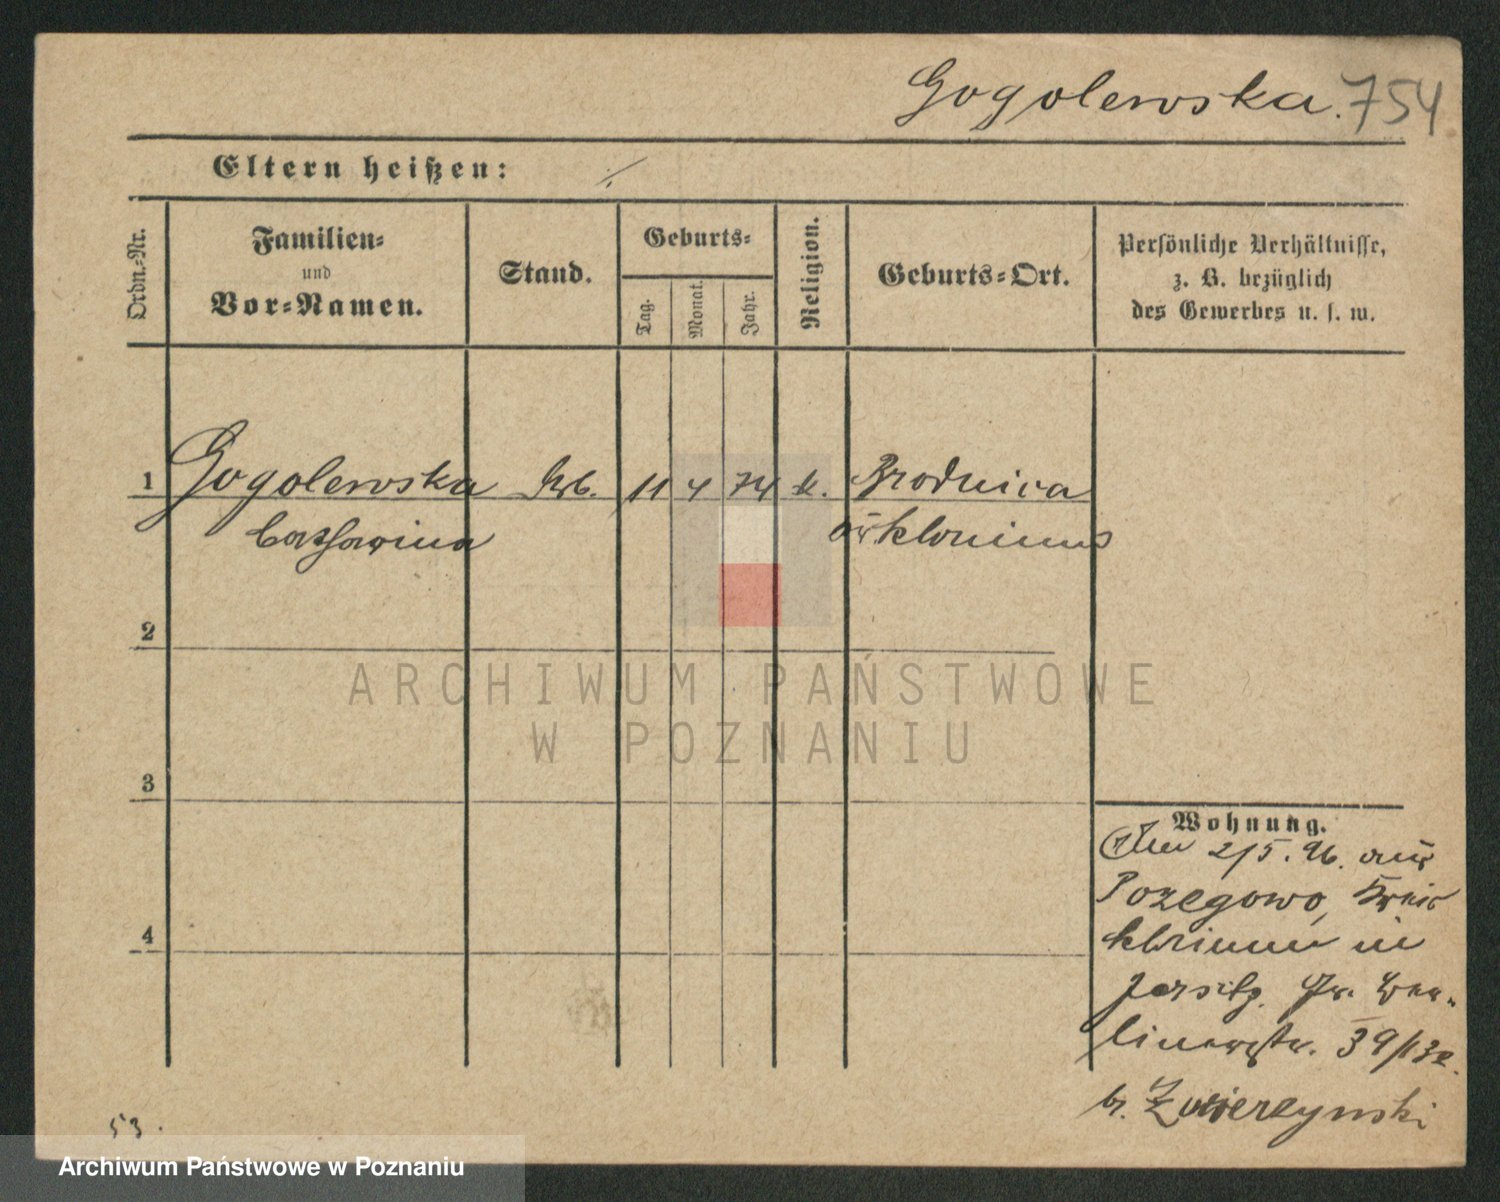 Gogolewska. 754
Eltern heißen: ./.
Ordn.-Nr.
Familien-
und
Vor-Namen.
Stand.
Geburts-
Tag.
Monat.
Jahr.
Religion.
Geburts-Ort.
Persönliche Verhältnisse,
z. B. bezüglich
des Gewerbes u. s. w.
1 Gogolewska 11 4 74 k. Brodnica
Catharina
2
3
4
Wohnung.
2/5. 96. aus
Pozegowo, Kreis
in
Jersitz. Gr. Ber-
linerstr. 39/13
b. Zwierzynski
53.
ARCHIWUM PAŃSTWOWE
W POZNANIU
Archiwum Państwowe w Poznaniu